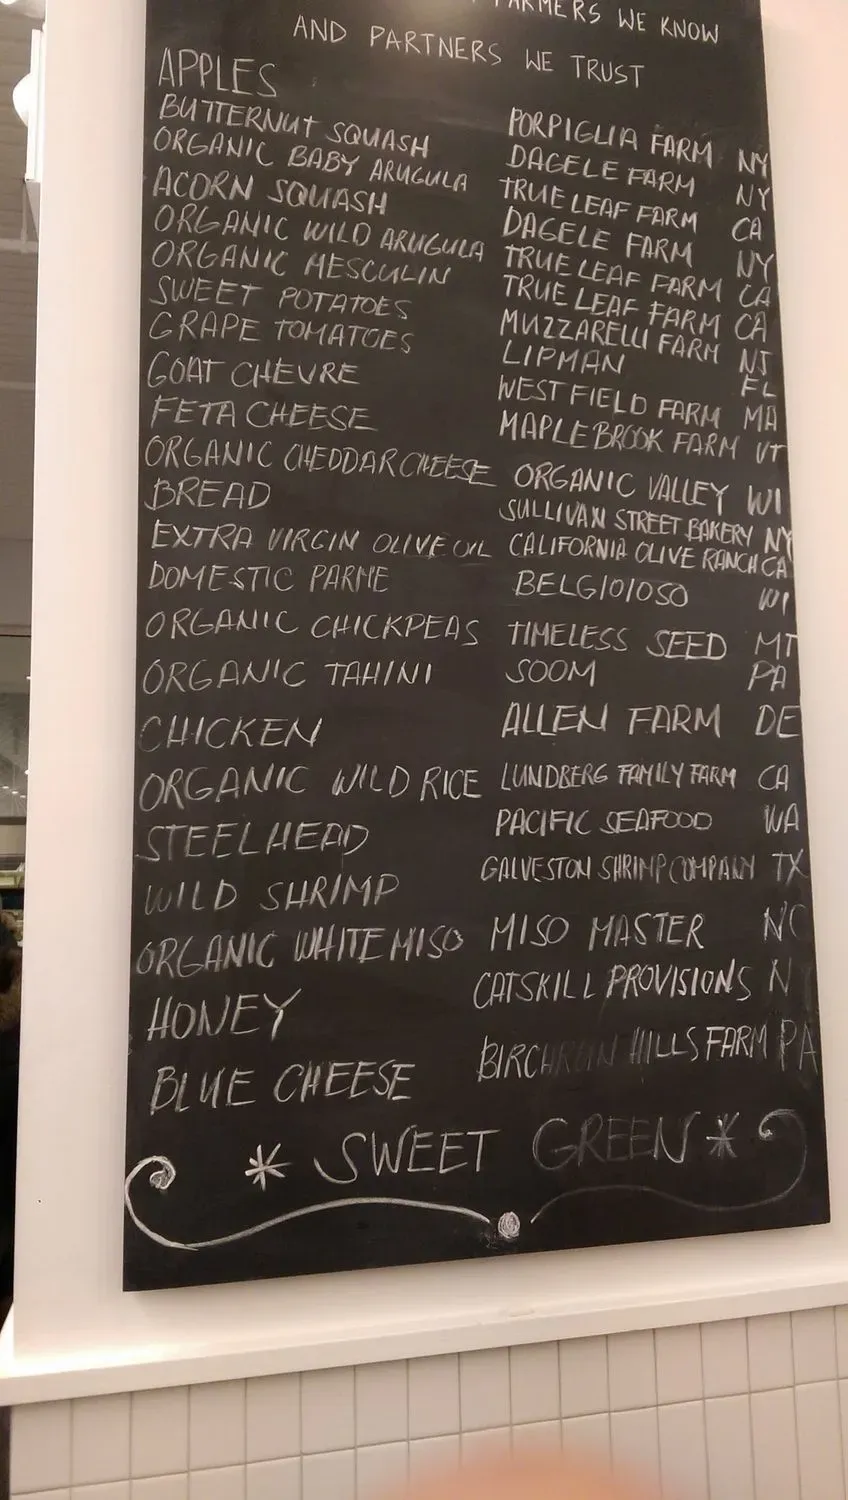 FARMERS WE KNOW
AND PARTNERS WE TRUST
APPLES PORPIGLIA FARM NY
BUTTERNUT SQUASH DAGELE FARM NY
ORGANIC BABY ARUGULA TRUE LEAF FARM CA
ACORN SQUASH DAGELE FARM NY
ORGANIC WILD ARUGULA TRUE LEAF FARM CA
ORGANIC MESCULIN TRUE LEAF FARM CA
SWEET POTATOES MUZZARELLI FARM NJ
GRAPE TOMATOES LIPMAN FL
GOAT CHEVRE WEST FIELD FARM MA
FETA CHEESE MAPLEBROOK FARM VT
ORGANIC CHEDDAR CHEESE ORGANIC VALLEY WI
BREAD SULLIVAN STREET BAKERY NY
EXTRA VIRGIN OLIVE OIL CALIFORNIA OLIVE RANCH CA
DOMESTIC PARME BELGIOIOSO WI
ORGANIC CHICKPEAS TIMELESS SEED MT
ORGANIC TAHINI SOOM PA
CHICKEN ALLEN FARM DE
ORGANIC WILD RICE LUNDBERG FAMILY FARM CA
STEELHEAD PACIFIC SEAFOOD WA
WILD SHRIMP GALVESTON SHRIMP COMPANY TX
ORGANIC WHITE MISO MISO MASTER NC
HONEY CATSKILL PROVISIONS N
BLUE CHEESE BIRCHRUN HILLS FARM PA
* SWEET GREEN *